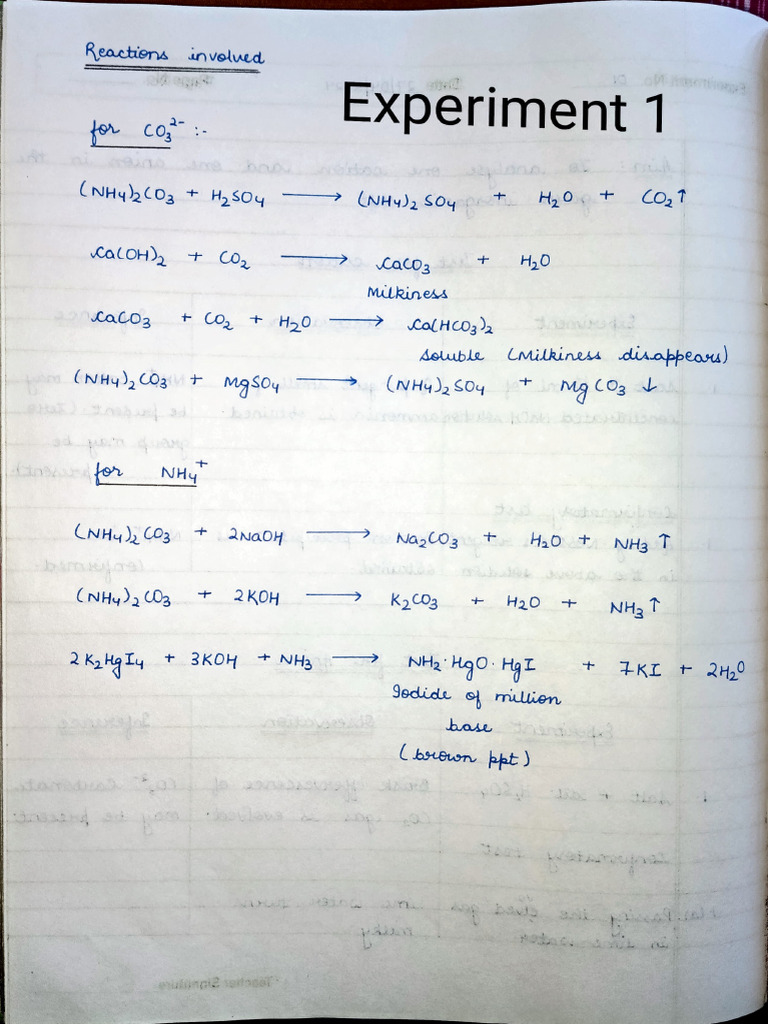 Reactions involved
Experiment 1
for CO₃²⁻ :-
(NH4)2CO3 + H2SO4 ⟶ (NH4)2 SO4 + H2O + CO2↑
Ca(OH)2 + CO2 ⟶ CaCO3 + H2O
Milkiness
CaCO3 + CO2 + H2O ⟶ Ca(HCO3)2
soluble (Milkiness disappears)
(NH4)2CO3 + MgSO4 ⟶ (NH4)2SO4 + MgCO3 ↓
for NH4⁺
(NH4)2CO3 + 2NaOH ⟶ Na2CO3 + H2O + NH3 ↑
(NH4)2CO3 + 2KOH ⟶ K2CO3 + H2O + NH3↑
2K2HgI4 + 3KOH + NH3 ⟶ NH2·HgO·HgI + 7KI + 2H2O
Iodide of million
base
(brown ppt)